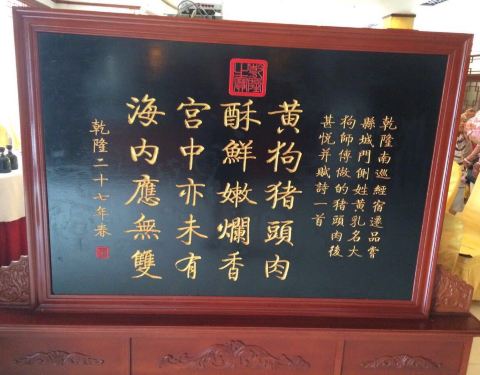 乾隆南巡經宿遷品嘗
縣城門側姓黃乳名大
狗師傅做的猪頭肉後
甚悦并賦詩一首
黃狗猪頭肉
酥鮮嫩爛香
宮中亦未有
海内應無雙
乾隆二十七年春